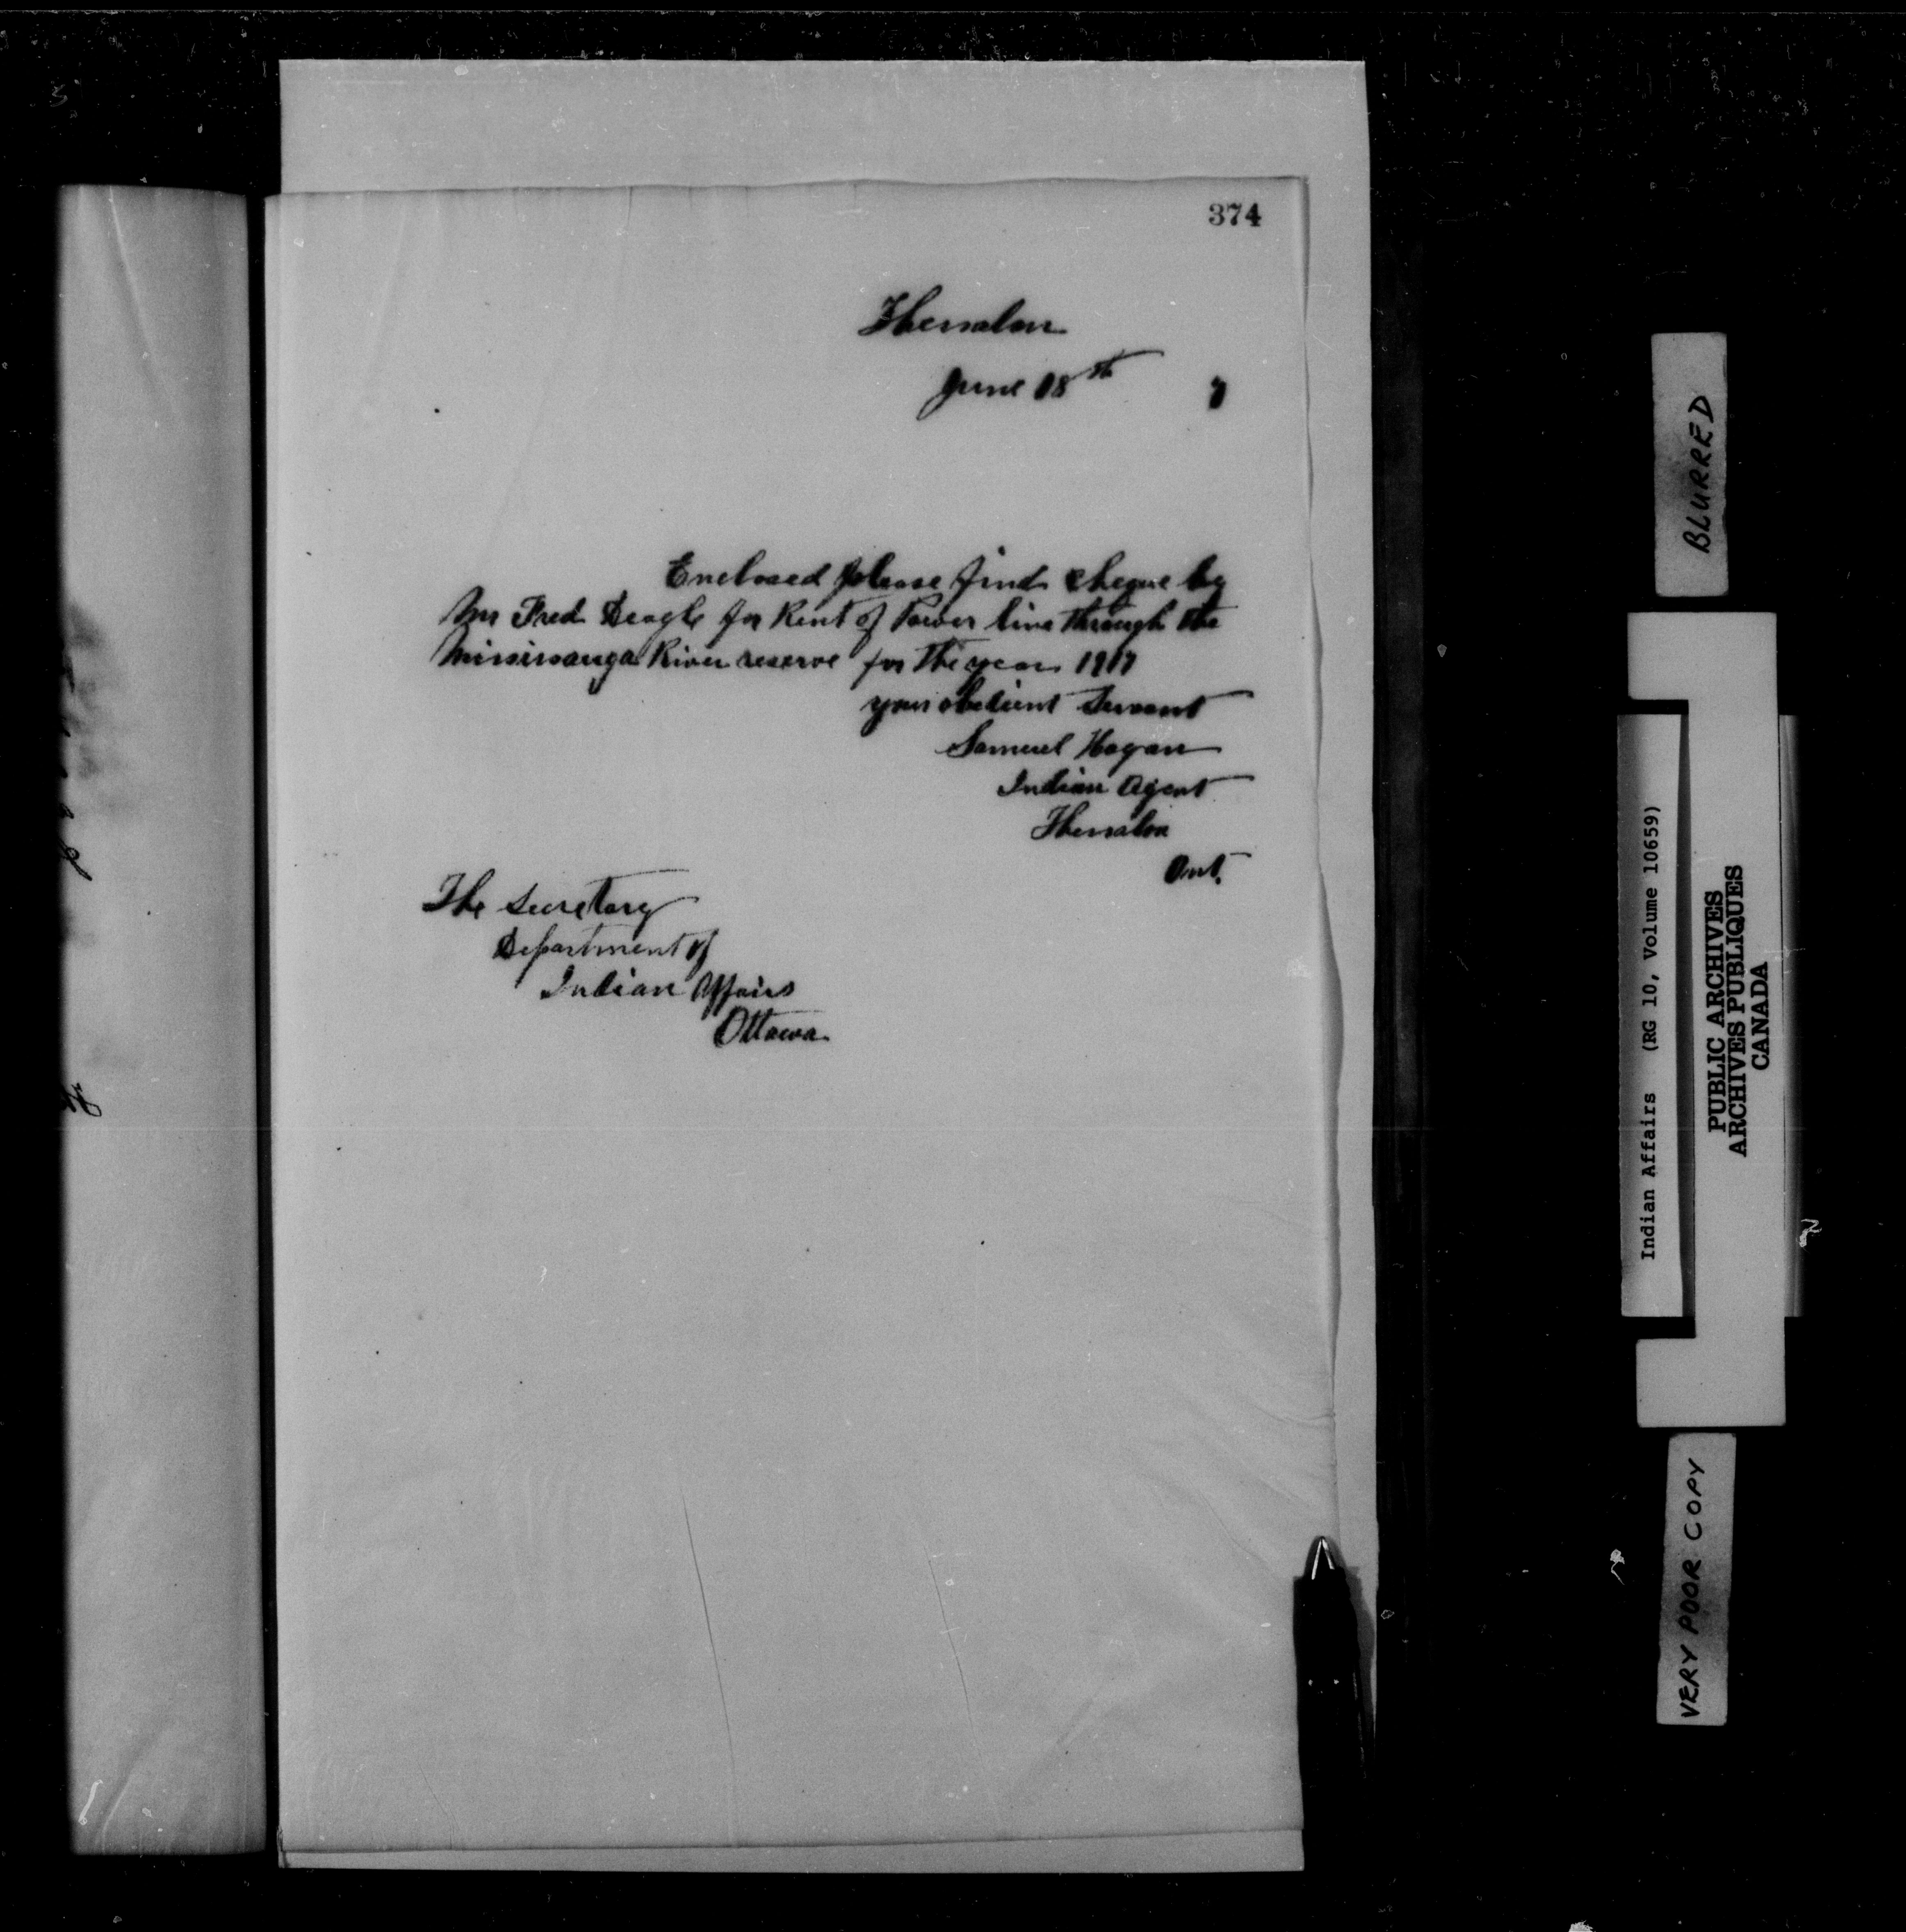 374
Thessalon
June 18th 7
Enclosed please find cheque by
Mr Fred Deagle for Rent of Power line through the
Mississauga River reserve for the year 1917
your obedient Servant
Samuel Hagan
Indian Agent
Thessalon
Ont.
The Secretary
Department of
Indian Affairs
Ottawa.
BLURRED
Indian Affairs (RG 10, Volume 10659)
PUBLIC ARCHIVES
ARCHIVES PUBLIQUES
CANADA
VERY POOR COPY